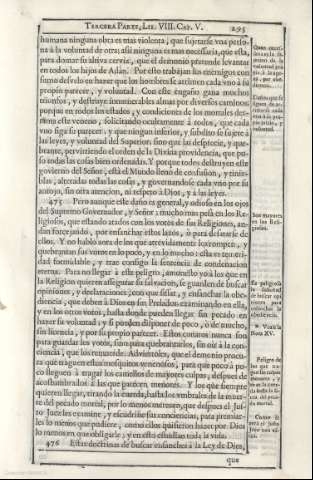 TERCERA PARTE, LIB. VIII. CAP. V. 295
humana ninguna obra es mas violenta, que sujetarse vna perso-
na à la voluntad de otra; assi ninguna es mas necessaria, que esta,
para domar su altiva cerviz, que el demonio pretende levantar
en todos los hijos de Adàn. Por esto trabajan los enemigos con
sumo desvelo en hazer que los hombres se arrimen cada vno à su
proprio parecer, y voluntad. Con este engaño gana muchos
triunfos, y destruye innumerables almas por diversos caminos:
porque en todos los estados, y condiciones de los mortales der-
rama este veneno, solicitando ocultamente à todos, que cada
vno siga su parecer: y que ningun inferior, y subdito se sujete à
las leyes, y voluntad del Superior: sino que las desprecie, y que-
brante, pervirtiendo el orden de la Divina providencia, que pu-
so todas las cosas bien ordenadas. Y porque todos destruyen este
govierno del Señor, està el Mundo lleno de confusion, y tinie-
blas, alteradas todas las cosas, y governandose cada vno por su
antojo, sin otra atencion, ni respeto à Dios, y à las leyes.
475 Pero aunque este daño es general, y odioso en los ojos
del Supremo Governador, y Señor; mucho mas pesa en los Re-
ligiosos, que estando atados con los votos de sus Religiones, an-
dan forcejando, por ensanchar estos lazos, ò para desatarse de
ellos. Y no hablo aora de los que atrevidamente los rompen, y
quebrantan sus votos en lo poco, y en lo mucho: esta es temeri-
dad formidable, y trae consigo la sentencia de condenacion
eterna. Para no llegar à este peligro, amonesto yo à los que en
la Religion quieren assegurar su salvacion, se guarden de buscar
opiniones, y declaraciones, con que sisar, y ensanchar la obe-
diencia, que deben à Dios en sus Prelados examinando en ella,
y en los otros votos, hasta donde pueden llegar sin pecado en
hazer su voluntad, y si pueden disponer de poco, ò de mucho,
sin licencia, y por su proprio parecer. Estos conatos nunca son
para guardar los votos, sino para quebrantarlos, sin oir à la con-
ciencia, que los remuerde. Adviertoles, que el demonio procu-
ra que traguen estos mosquitos venenosos, para que poco à po-
co lleguen à tragar los camellos de mayores culpas, despues de
acostumbrados à las que parecen menores. Y los que siempre
quieren llegar, tirando la cuerda, hasta los vmbrales de la muer-
te del pecado mortal, por lo menos merecen, que despues el Jus-
to Juez les examine, y escudriñe sus conciencias, para premiar-
les lo menos que pudiere, como ellos quisieron hazer por Dios
lo menos en que obligarle: y en esto estudian toda la vida.
476 Estas doctrinas de buscar ensanches à la Ley de Dios,
que
Son mayores
en los Reli-
giosos.
* Vease la
Nota XV.
Peligro de